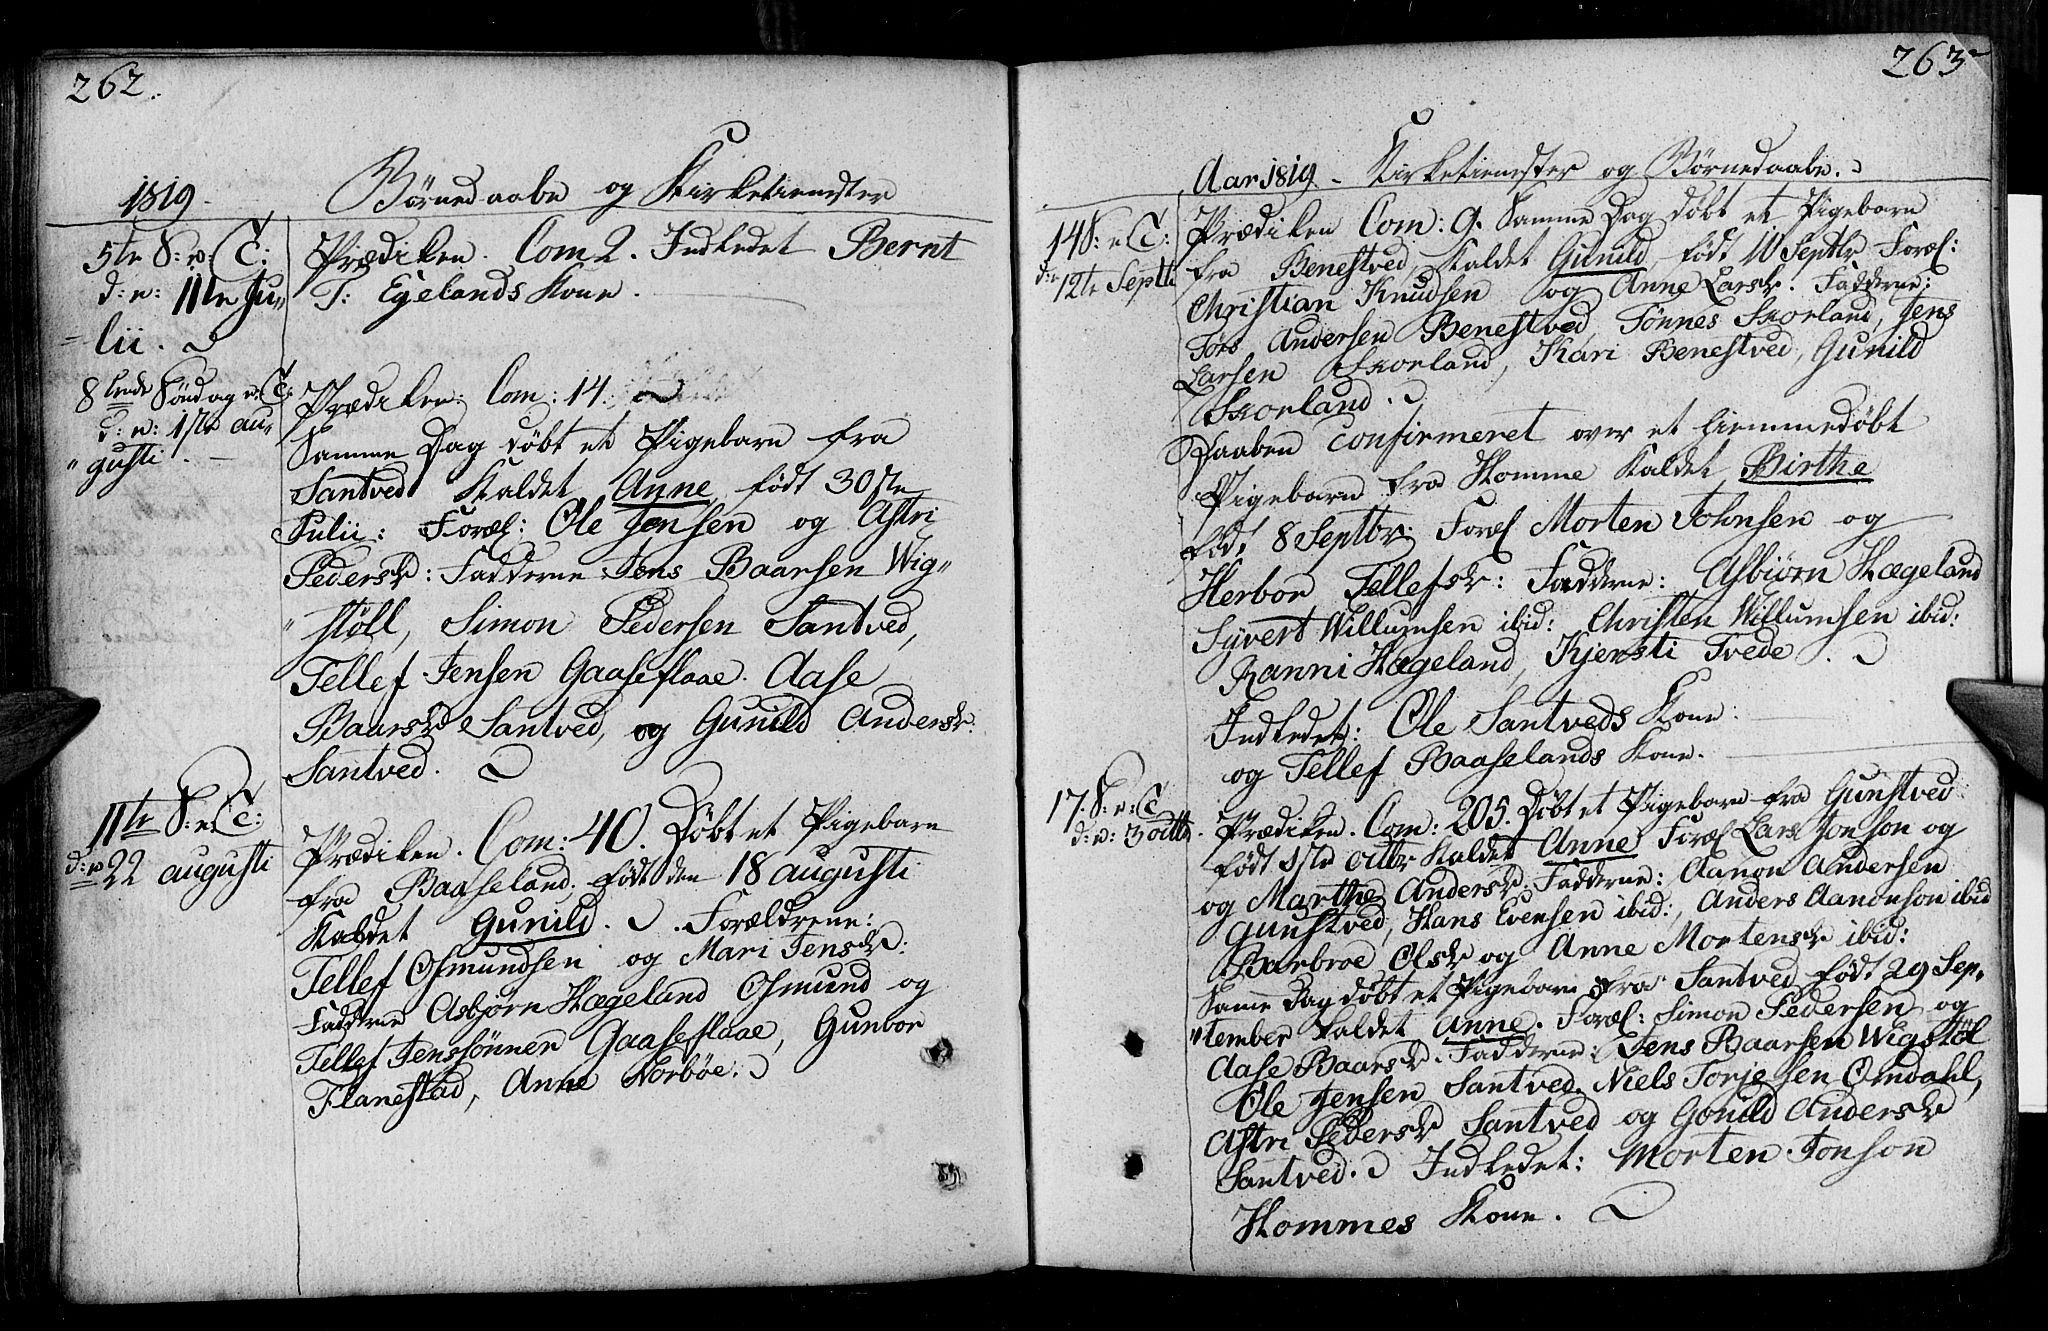 262.
1819.
Børnedaabe og Kirketienester
5te S: e: T:
d: e: 11te Ju-
lii.
Prædiken. Com 2. Indledet Bernt
T: Egelands Kone.
8tende Søndag e: T:
d: e: 1ste au-
gusti.
Prædiken: Com: 14.
Samme Dag døbt et Pigebarn fra
Santved Kaldet Anne, født 30ste
Julii: Foræl: Ole Jensen og Astri
Pedersdr: Fadderne: Jens Baarsen Wig-
støll, Simon Pedersen Santved,
Tellef Jensen Gaaseflaae. Aase
Baarsdr Santved, og Gunild Andersdr.
Santved.
11te S. e. T:
d: e 22 augusti
Prædiken. Com: 40. Døbt et Pigebarn
fra Baaseland, født den 18 augusti
Kaldet Gunild. Forældrene:
Tellef Osmundsen og Mari Jensdr:
Fadderne Asbjørn Hægeland Osmund og
Tellef Jenssønner Gaaseflaae, Gunbor
Flanestad, Anne Norbøe:
263
Aar 1819. Kirketienester og Børnedaabe.
14 S: e T:
d: e 12te Septbr
Prædiken Com: 9. Samme Dag døbt et Pigebarn
fra Benestved, Kaldet Gunild, født 10 Septbr Foræl:
Christian Knudsen og Anne Larsdr. Fadderne:
Tors Andersen Benestved, Tønnes Skorland, Jens
Larsen Skorland, Kari Benestved, Gunild
Skorland.
Daaben confirmeret over et hiemmedøbt
Pigebarn fra Homme Kaldet Birthe
født 8 Septbr: Foræl Morten Johnsen og
Herbor Tellefsdr: Fadderne: Asbiørn Hægeland
Syvert Willumsen ibid: Christen Willumsen ibid:
Ranni Hægeland, Kjersti Tvede.
Indledet: Ole Santveds Kone:
og Tellef Baaselands Kone.
17. S: e: T
d: e: 3 octbr.
Prædiken. Com: 205. Døbt et Pigebarn fra Gunstved
født 1ste octbr Kaldet Anne Foræl Lars Jonson og
og Marthe Andersdr. Fadderne: Aanon Andersen
Gunstved, Hans Evensen ibid:, Anders Aanonson ibid
Barbroe Olsdr og Anne Mortensdr ibid:
Same Dag døbt et Pigebarn fra Santved født 29 Sep-
"tember Kaldet Anne. Foræl: Simon Pedersen og
Aase Baarsdr. Fadderne: Jens Baarsen Wigstøl
Ole Jensen Santved, Niels Torjesen Omdahl,
Astri Pedersdr Santved og Gonild Andersdr
Santved. Indledet: Morten Jonson
Hommes Kone.